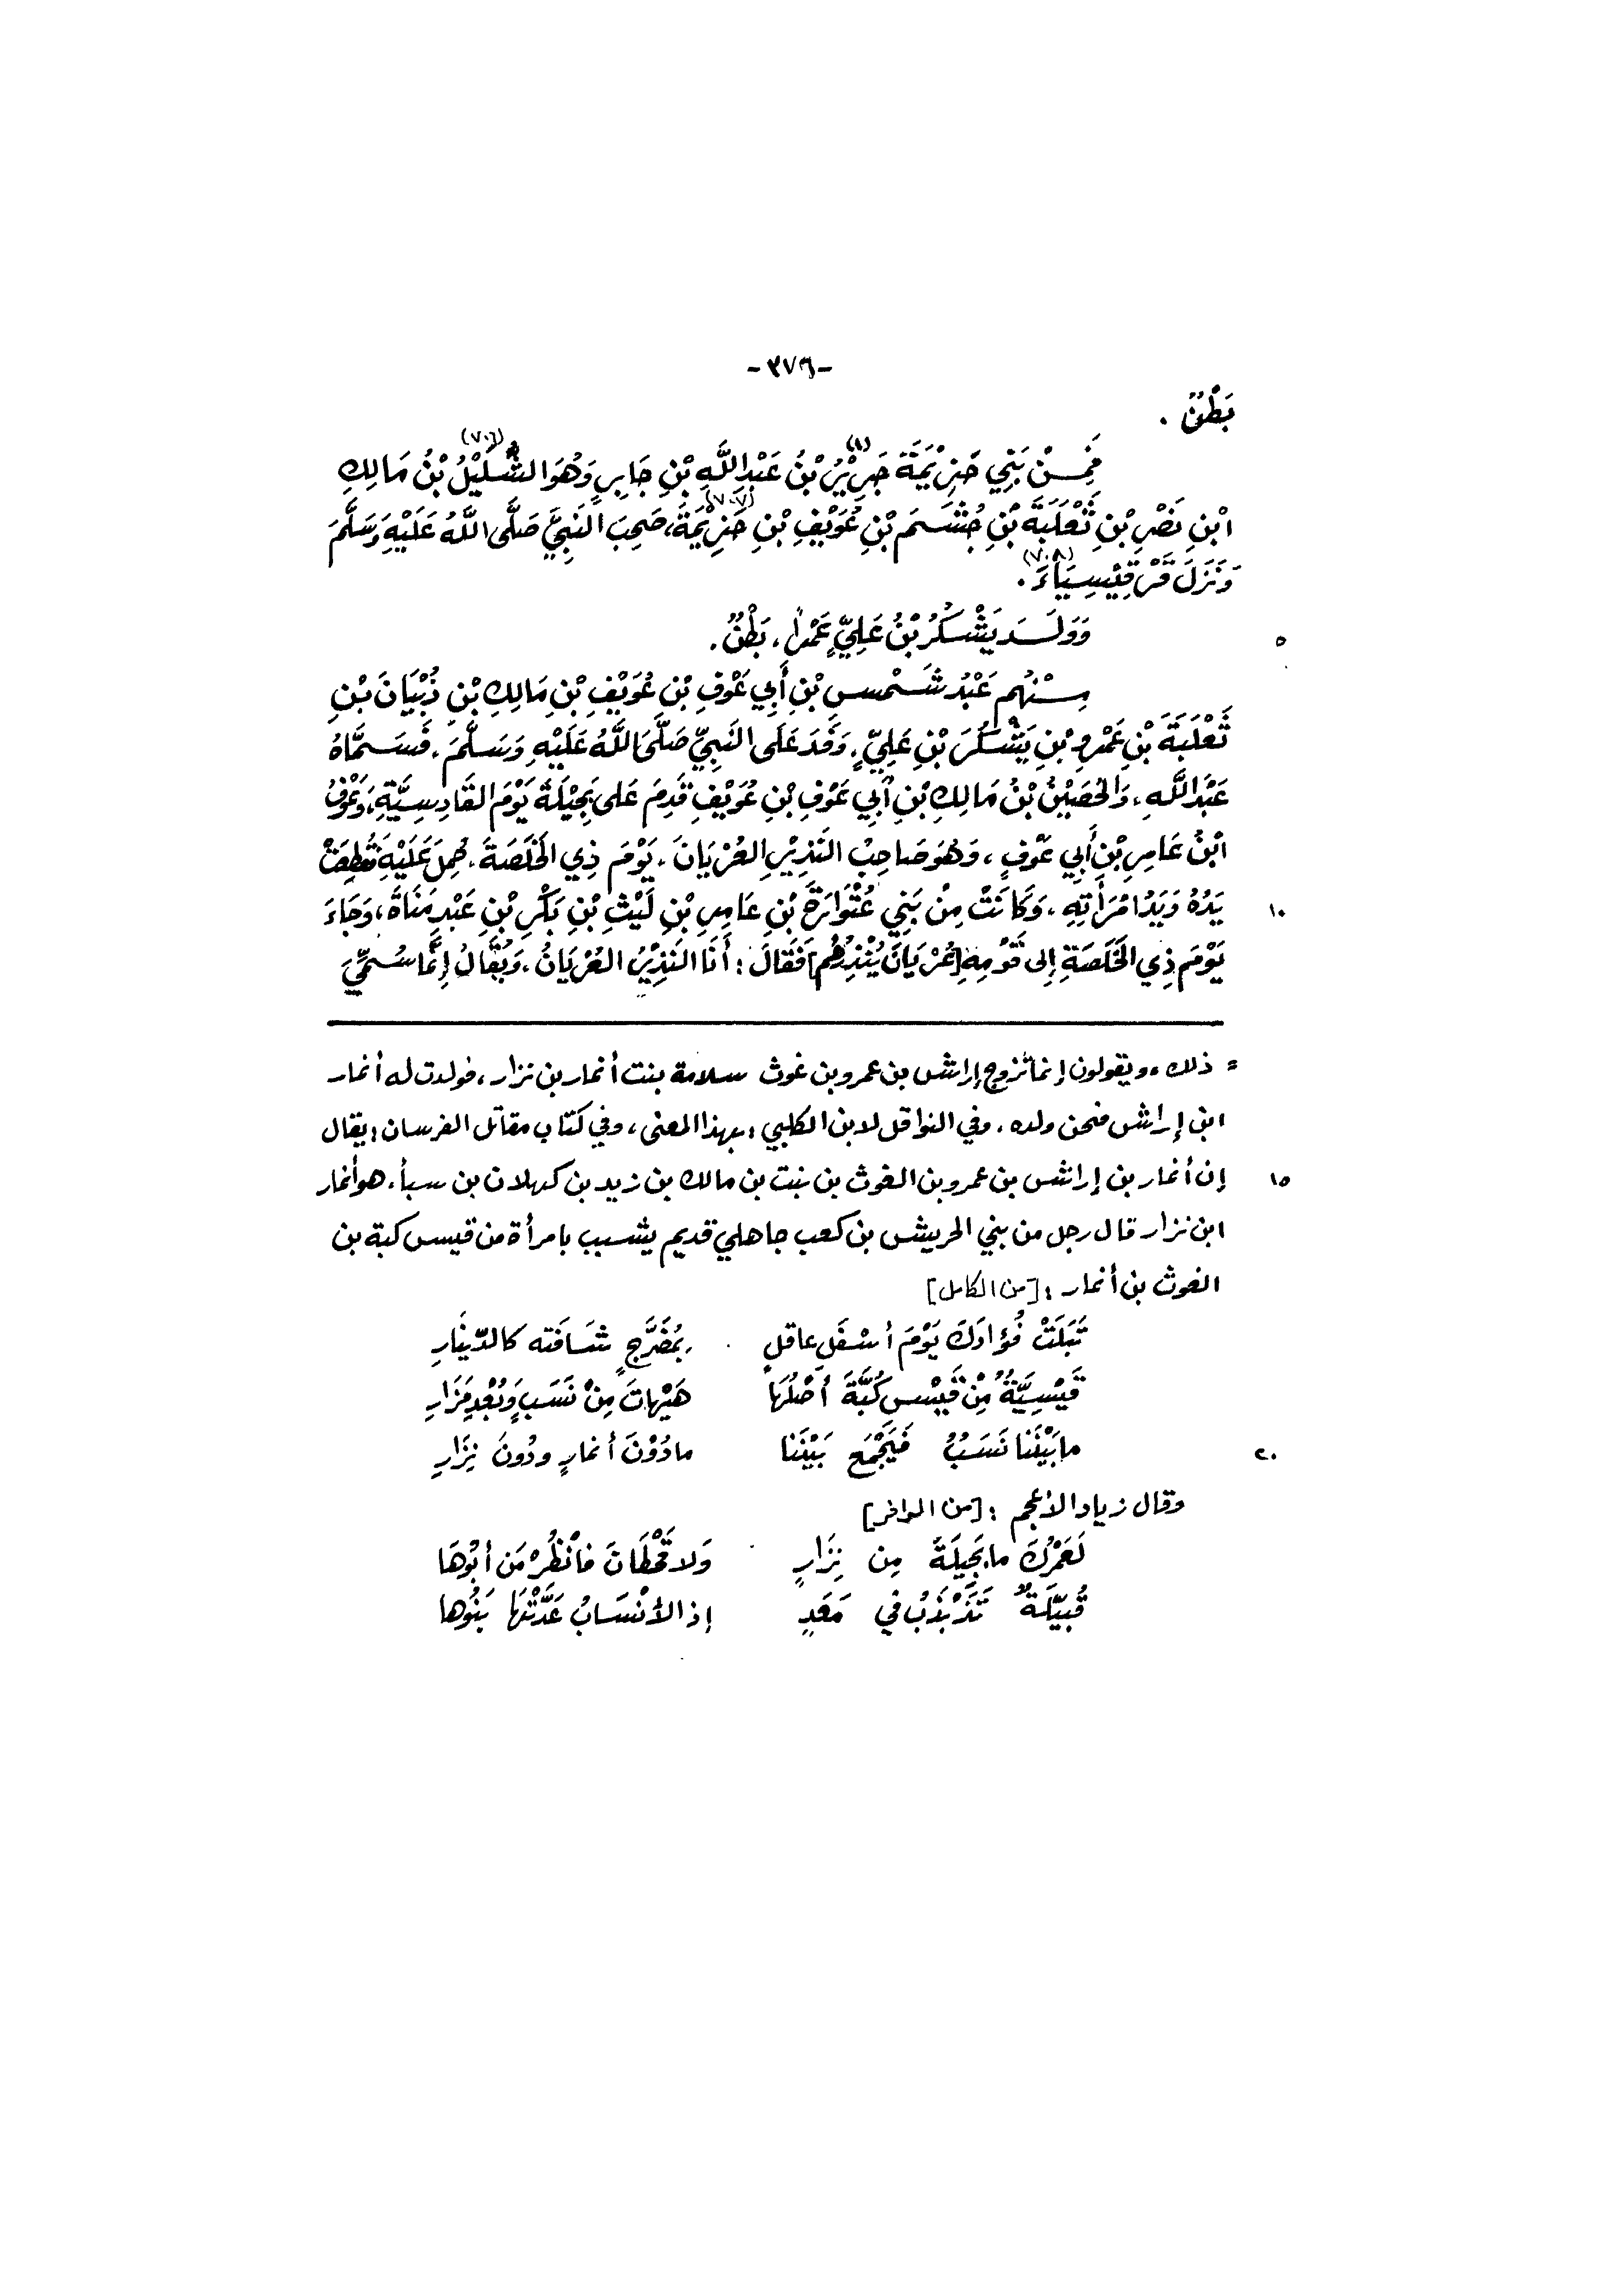 -٣٧٦-
بَطْنٌ .
فَمِنْ بَنِي حَزِيْمَةَ جَرِيْرُ بْنُ عَبْدِ اللَّهِ بْنِ جَابِرٍ وَهُوَ الشَّلَيْلُ بْنُ مَالِكِ
(١) (٧٠٦)
ابْنِ نَصْرِ بْنِ ثَعْلَبَةَ بْنِ جُشَمَ بْنِ عُوَيْفِ بْنِ حَزِيْمَةَ، صَحِبَ النَبِيَّ صَلَّى اللَّهُ عَلَيْهِ وَسَلَّمَ
(٧٠٧)
وَنَزَلَ قَرْقِيْسِيَاءَ .
(٧٠٨)
وَوَلَدَ يَشْكُرُ بْنُ عَلِيٍّ عَمْراً، بَطْنٌ .
٥
مِنْهُم عَبْدُ شَمْسِ بْنِ أَبِي عَوْفِ بْنِ عُوَيْفِ بْنِ مَالِكِ بْنِ ذُبْيَانَ بْنِ
ثَعْلَبَةَ بْنِ عَمْرِو بْنِ يَشْكُرَ بْنِ عَلِيٍّ، وَفَدَ عَلَى النَبِيِّ صَلَّى اللَّهُ عَلَيْهِ وَسَلَّمَ، فَسَمَّاهُ
عَبْدَ اللَّهِ، وَالْحُصَيْنُ بْنُ مَالِكِ بْنِ أَبِي عَوْفِ بْنِ عُوَيْفِ قَدِمَ عَلَى بَجِيْلَةَ يَوْمَ القَادِسِيَّةِ، وَعَوْفُ
ابْنُ عَامِرِ بْنِ أَبِي عَوْفٍ، وَهُوَ صَاحِبُ النَذِيْرِ العُرْيَانَ، يَوْمَ ذِي الْخَلَصَةَ، حُمِلَ عَلَيْهِ فَقُطِعَتْ
يَدُهُ وَيَدُ امْرَأَتِهِ، وَكَانَتْ مِنْ بَنِي عُتْوَارَةَ بْنِ عَامِرِ بْنِ لَيْثِ بْنِ بَكْرِ بْنِ عَبْدِ مَنَاةَ، وَجَاءَ
١٠
يَوْمَ ذِي الْخَلَصَةِ إِلى قَوْمِهِ [عُرْيَانَ يُنْذِرُهُم] فَقَالَ : أَنَا النَذِيْرُ العُرْيَانُ، وَيُقَالُ إِنَّمَا سُمِّيَ
= ذلك، ويقولون إنما تزوج إراش بن عمرو بن غوث سلامة بنت أنمار بن نزار، فولدت له أنمار
ابن إراش فنحن ولده، وفي النواقل لابن الكلبي : بهذا المعنى، وفي كتاب مقاتل الفرسان : يقال
إن أنمار بن إراش بن عمرو بن الغوث بن نبت بن مالك بن زيد بن كهلان بن سبأ، هو أنمار
١٥
ابن نزار قال رجل من بني الحريش بن كعب جاهلي قديم يشبب بامرأة من قيس كبة بن
الغوث بن أنمار : [من الكامل]
تَبَلَتْ فُؤادَكَ يَوْمَ أسْفَلِ عاقلٍ بمُضَرَّجٍ شَافَته كالدّينَارِ
قَيْسِيَّةٌ مِنْ قَيْسِ كُبَّةَ أصْلُهَا هَيْهَاتَ مِنْ نَسَبٍ وَبُعْدِ مَزَارِ
ما بَيْنَنا نَسَبٌ فَيَجْمَعَ بَيْنَنا ما دُوْنَ أنمارٍ ودُونَ نِزَارِ
٢٠
وقال زياد الأعجم : [من الوافر]
لَعَمْرُكَ ما بَجِيلَةُ مِن نِزَارٍ وَلا قَحْطَانَ فانْظُرْ مَن أبُوْهَا
قُبَيِّلَةٌ تَذَبْذَبُ في مَعَدٍ إذ الأنْسَابُ عَدَّتْهَا بَنُوها